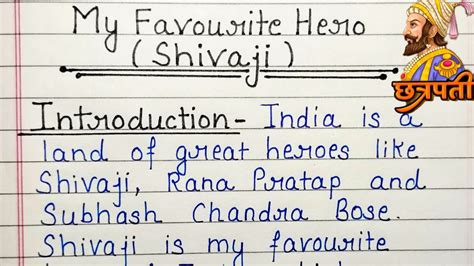 My Favourite Hero
(Shivaji)
छत्रपती
Introduction- India is a
land of great heroes like
Shivaji, Rana Pratap and
Subhash Chandra Bose.
Shivaji is my favourite